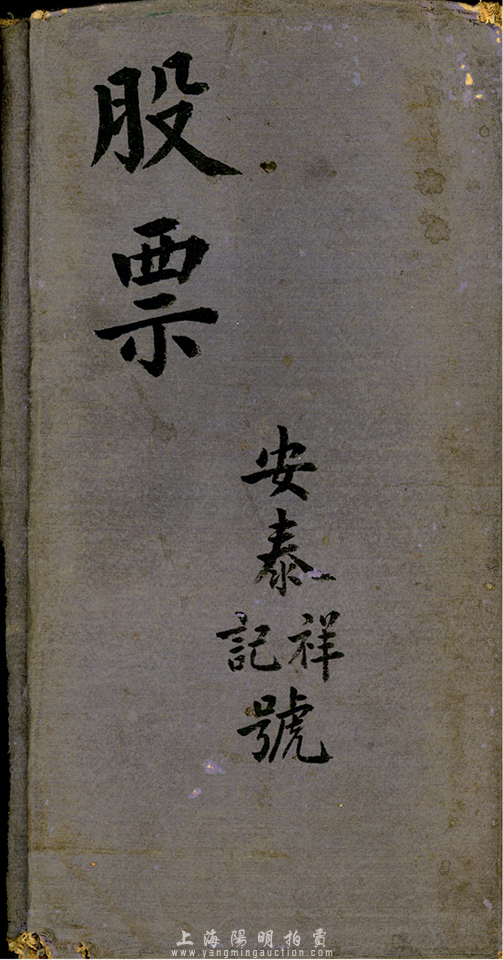 股票
安泰
祥記
號
上海陽明拍賣
www.yangmingauction.com